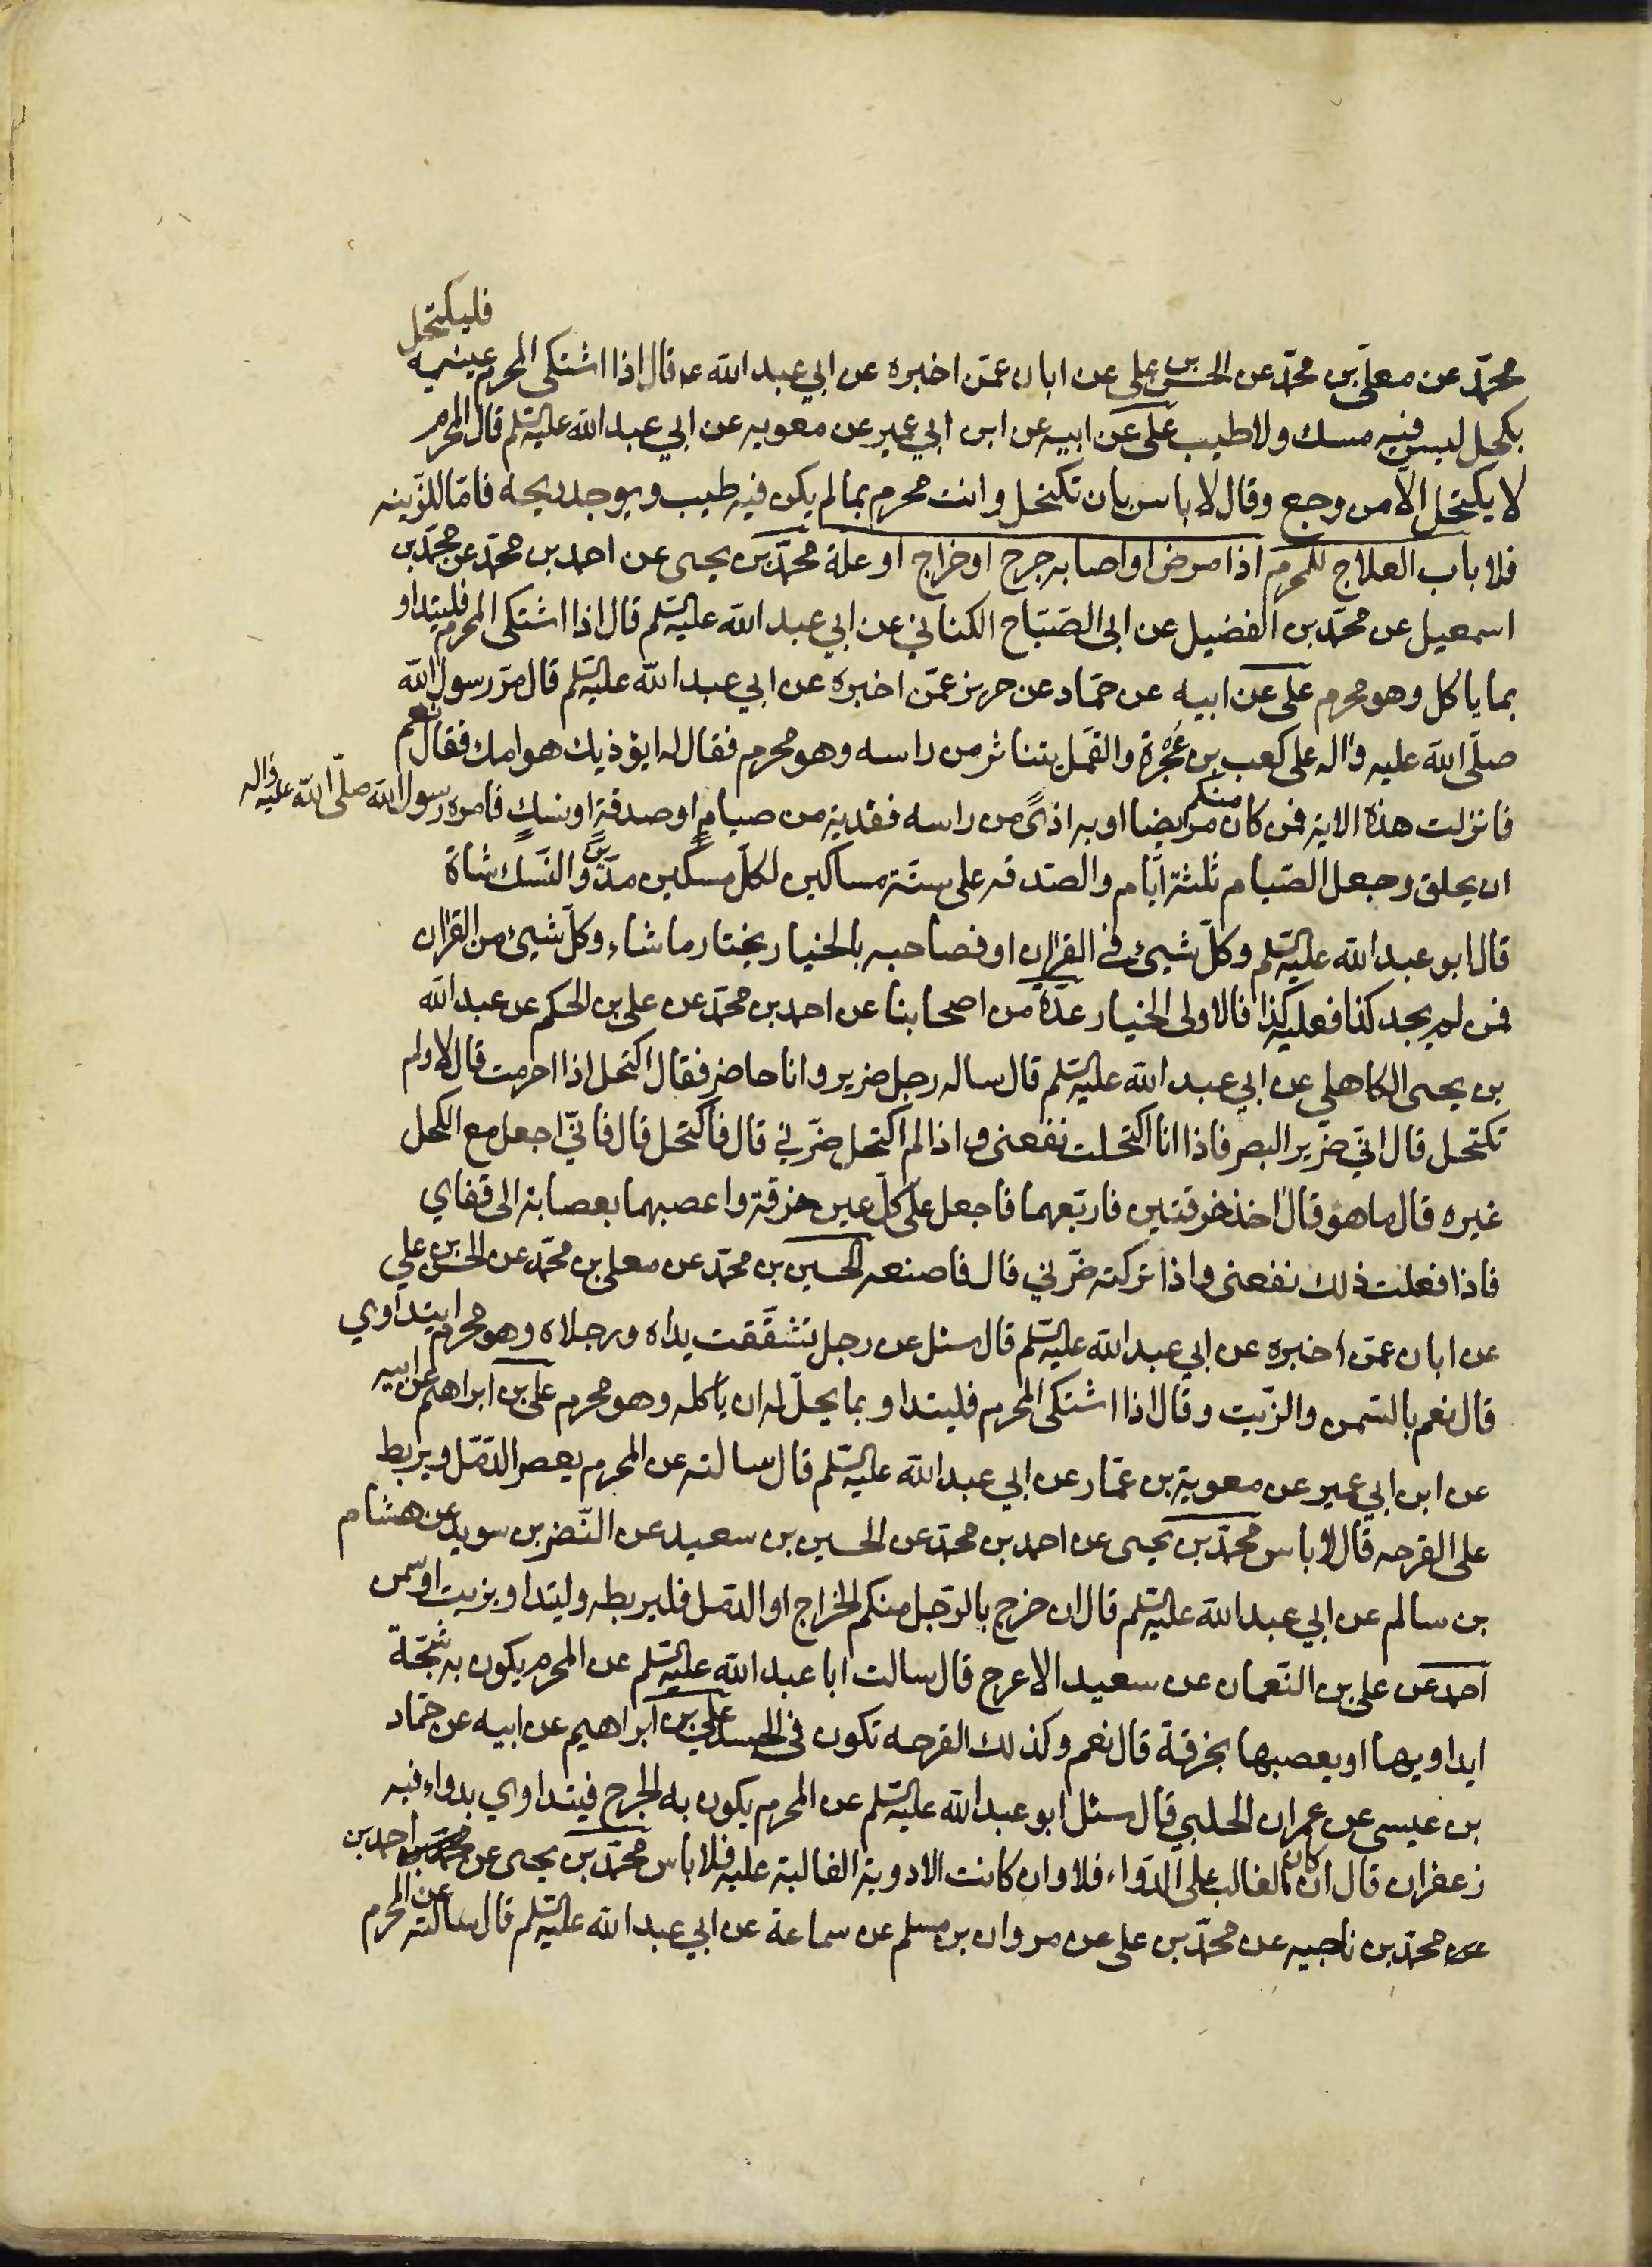 محمّد عن معلّى بن محمّد عن الحسن بن علي عن ابان عمّن اخبره عن ابي عبد الله عه قال اذا اشتكى المحرم عينيه فليكتحل
بكحل ليس فيه مسك ولا طيب علي عن ابيه عن ابن ابي عمير عن معويه عن ابي عبد الله عليه السّلم قال المحرم
لا يكتحل الّا من وجع وقال لا باس بان تكتحل وانت محرم بما لم يكن فيه طيب ويوجد ريحه فامّا للزّينه
فلا باب العلاج للمحرم اذا مرض او اصابه جرح او خراج او علّة محمّد بن يحيى عن احمد بن محمّد عن محمّد بن
اسمعيل عن محمّد بن الفضيل عن ابى الصّبّاح الكناني عن ابي عبد الله عليه السّلم قال اذا اشتكى المحرم فليتداو
بما ياكل وهو محرم علي عن ابيه عن حمّاد عن حريز عمّن اخبره عن ابي عبد الله عليه السّلم قال مرّ رسول الله
صلّى الله عليه واله على كعب بن عُجْرة والقمّل يتناثر من راسه وهو محرم فقال له ايؤذيك هوامك فقال نعم
فانزلت هذه الاية فمن كان منكم مريضا او به اذىً من راسه ففدية من صيامٍ او صدقةٍ او نسكٍ فامره رسول الله صلّى الله عليه واله
ان يحلق وجعل الصّيام ثلثة ايّام والصّدقه على ستّة مساكين لكلّ مسكين مدّين والنّسك شاة
قال ابو عبد الله عليه السّلم وكلّ شيئ في القران او فصاحبه بالخيار يختار ما شاء وكلّ شيئ من القران
فمن لم يجد كذا فعليه كذا فالاولى الخيار عدّة من اصحابنا عن احمد بن محمّد عن علي بن الحكم عن عبد الله
بن يحيى الكاهلي عن ابي عبد الله عليه السّلم قال ساله رجل ضرير وانا حاضر فقال اكتحل اذا احرمت قال لا ولم
تكتحل قال انّي ضرير البصر فاذا انا اكتحلت نفعنى واذا لم اكتحل ضرّني قال فاكتحل قال فانّي اجعل مع الكحل
غيره قال ما هو قال اخذ خرقتين فاربّعهما فاجعل على كلّ عين خرقة واعصبهما بعصابة الى قفاي
فاذا فعلت ذلك نفعنى واذا تركته ضرّني قال فاصنعه الحسين بن محمّد عن معلى بن محمّد عن الحسن بن علي
عن ابان عمّن اخبره عن ابي عبد الله عليه السّلم قال سئل عن رجل تشقّقت يداه ورجلاه وهو محرم ايتداوي
قال نعم بالسّمن والزّيت وقال اذا اشتكى المحرم فليتداو بما يحلّ له ان ياكله وهو محرم علي بن ابراهيم عن ابيه
عن ابن ابي عمير عن معوية بن عمّار عن ابي عبد الله عليه السّلم قال سالته عن المحرم يعصر الدّمّل ويربط
على القرحه قال لا باس محمّد بن يحيى عن احمد بن محمّد عن الحسين بن سعيد عن النّضر بن سويد عن هشام
بن سالم عن ابي عبد الله عليه السّلم قال ان خرج بالرّجل منكم الخراج او الدّمّل فليربطه وليتداو بزيت او سمن
احمد عن علي بن النّعمان عن سعيد الاعرج قال سالت ابا عبد الله عليه السّلم عن المحرم يكون به شجّة
ايداويها او يعصبها بخرقة قال نعم وكذلك القرحه تكون في الجسد علي بن ابراهيم عن ابيه عن حمّاد
بن عيسى عن عمران الحلبي قال سئل ابو عبد الله عليه السّلم عن المحرم يكون به الجرح فيتداوي بدواء فيه
زعفران قال ان كان الغالب على الدّواء فلا وان كانت الادوية الغالبة عليه فلا باس محمّد بن يحيى عن محمّد بن احمد بن
عن محمّد بن ناجيه عن محمّد بن علي عن مروان بن مسلم عن سماعة عن ابي عبد الله عليه السّلم قال سالته عن المحرم